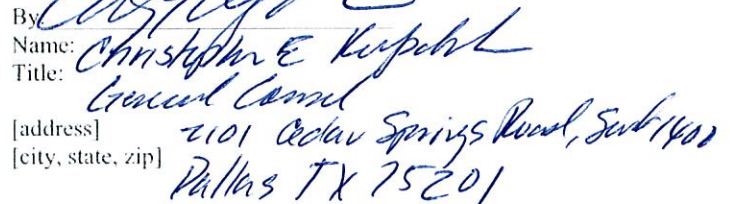 By
Name: Christopher E
Title:
General Counsel
[address] 2101 Cedar Springs Road, Suite 1400
[city, state, zip]
Dallas TX 75201